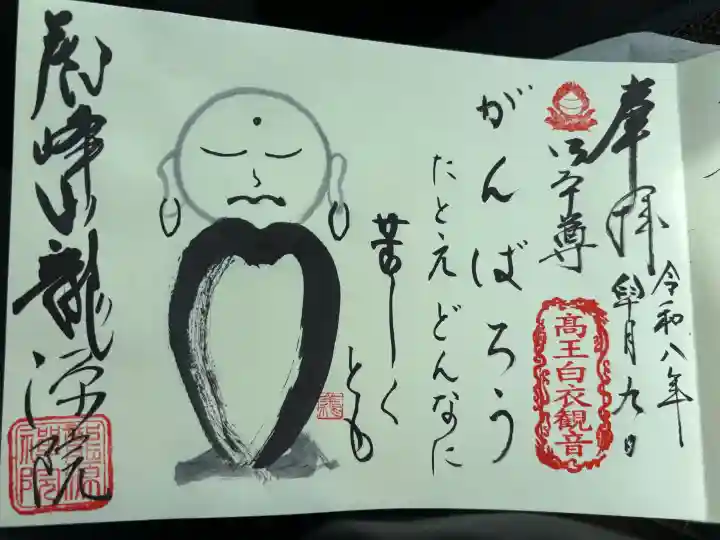 奉拝
令和八年
月九日
御本尊
髙王白衣観音
がんばろう
たとえどんなに
苦しく
とも
峰山龍源院